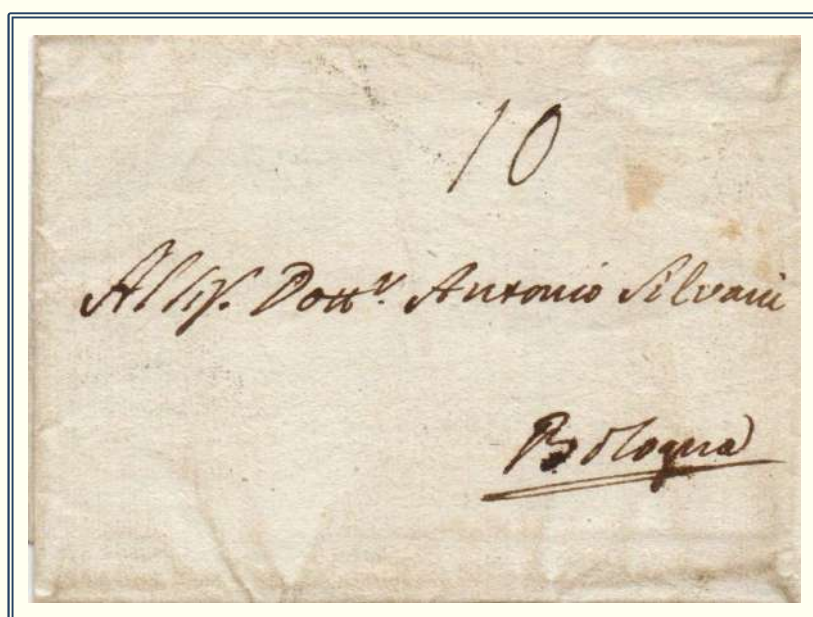 10
All Sig.r Dott.r Antonio Silvani
Bologna